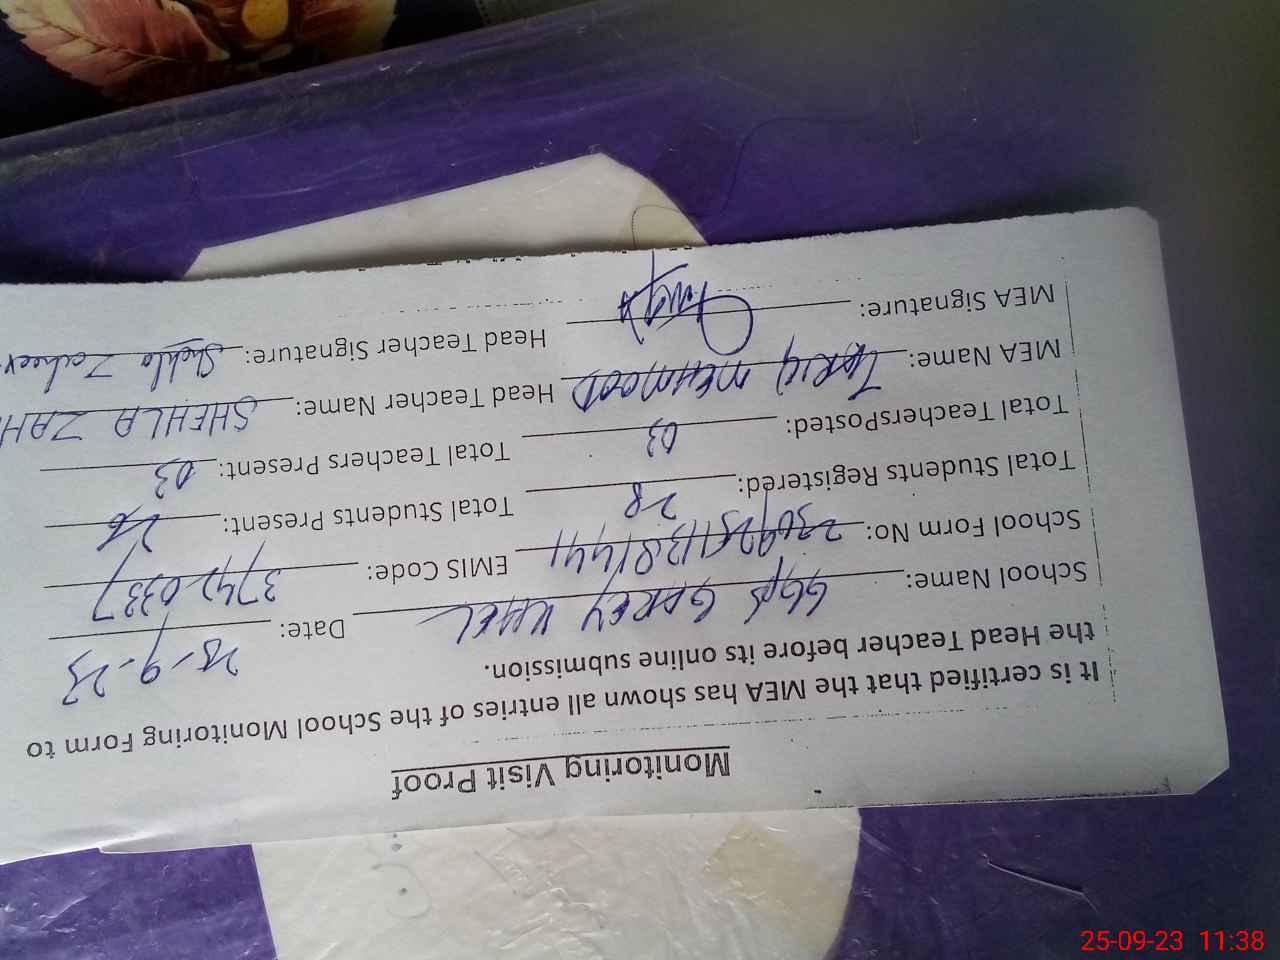 Monitoring Visit Proof
It is certified that the MEA has shown all entries of the School Monitoring Form to
the Head Teacher before its online submission.
School Name: GGPS GAREY KHEL Date: 25-9-23
School Form No: EMIS Code: 37420337
Total Students Registered: 28 Total Students Present: 26
Total TeachersPosted: 03 Total Teachers Present: 03
MEA Name: TARIQ MEHMOOD Head Teacher Name: SHEHLA ZAH
MEA Signature: Head Teacher Signature: Shehla Zaheer
25-09-23 11:38